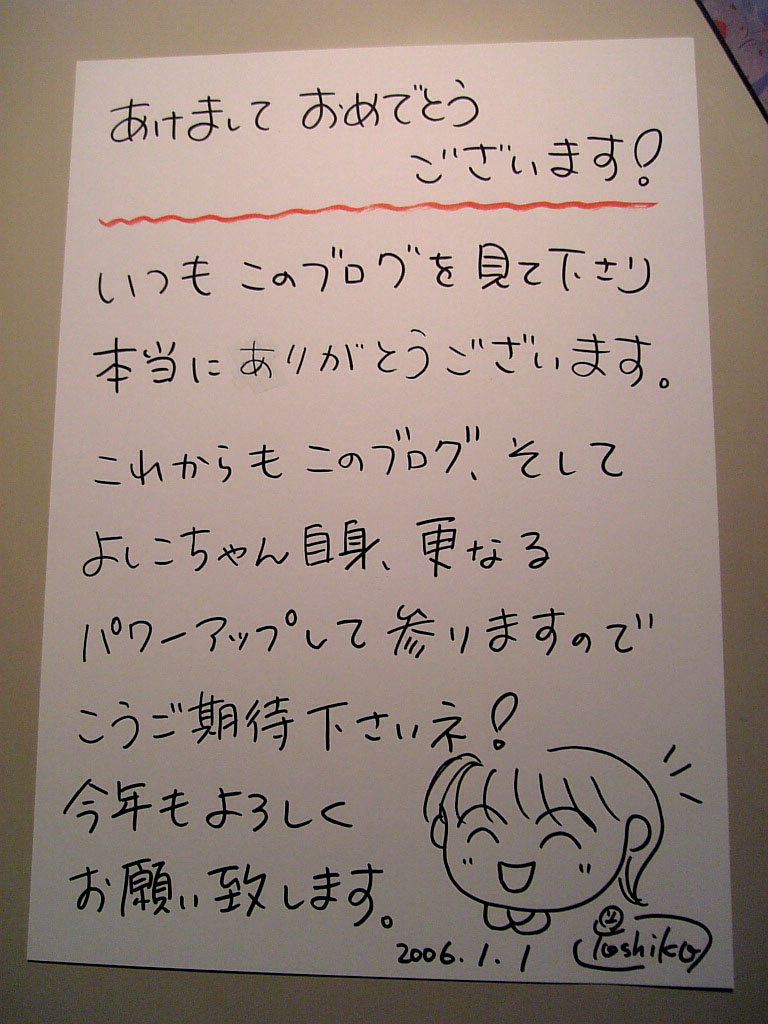 あけまして おめでとう
ございます!
いつも このブログを 見て下さり
本当に ありがとうございます。
これからも このブログ、そして
よしこちゃん自身、更なる
パワーアップして 参りますので
こうご期待下さいネ!
今年もよろしく
お願い致します。
2006.1.1
Yoshiko